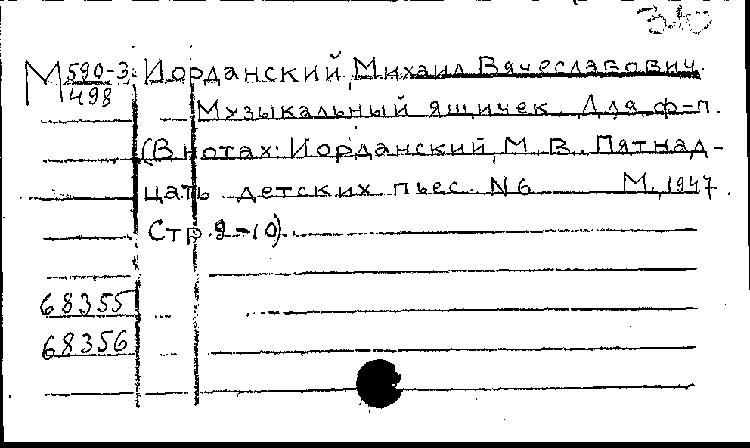 М 590-3 Иорданский, Михаил Вячеславович.
498
Музыкальный ящичек. Для ф-п.
(В нотах: Иорданский, М. В. Пятнад-
цать детских пьес. N 6 М., 1947.
Стр. 9-10).
68355
68356